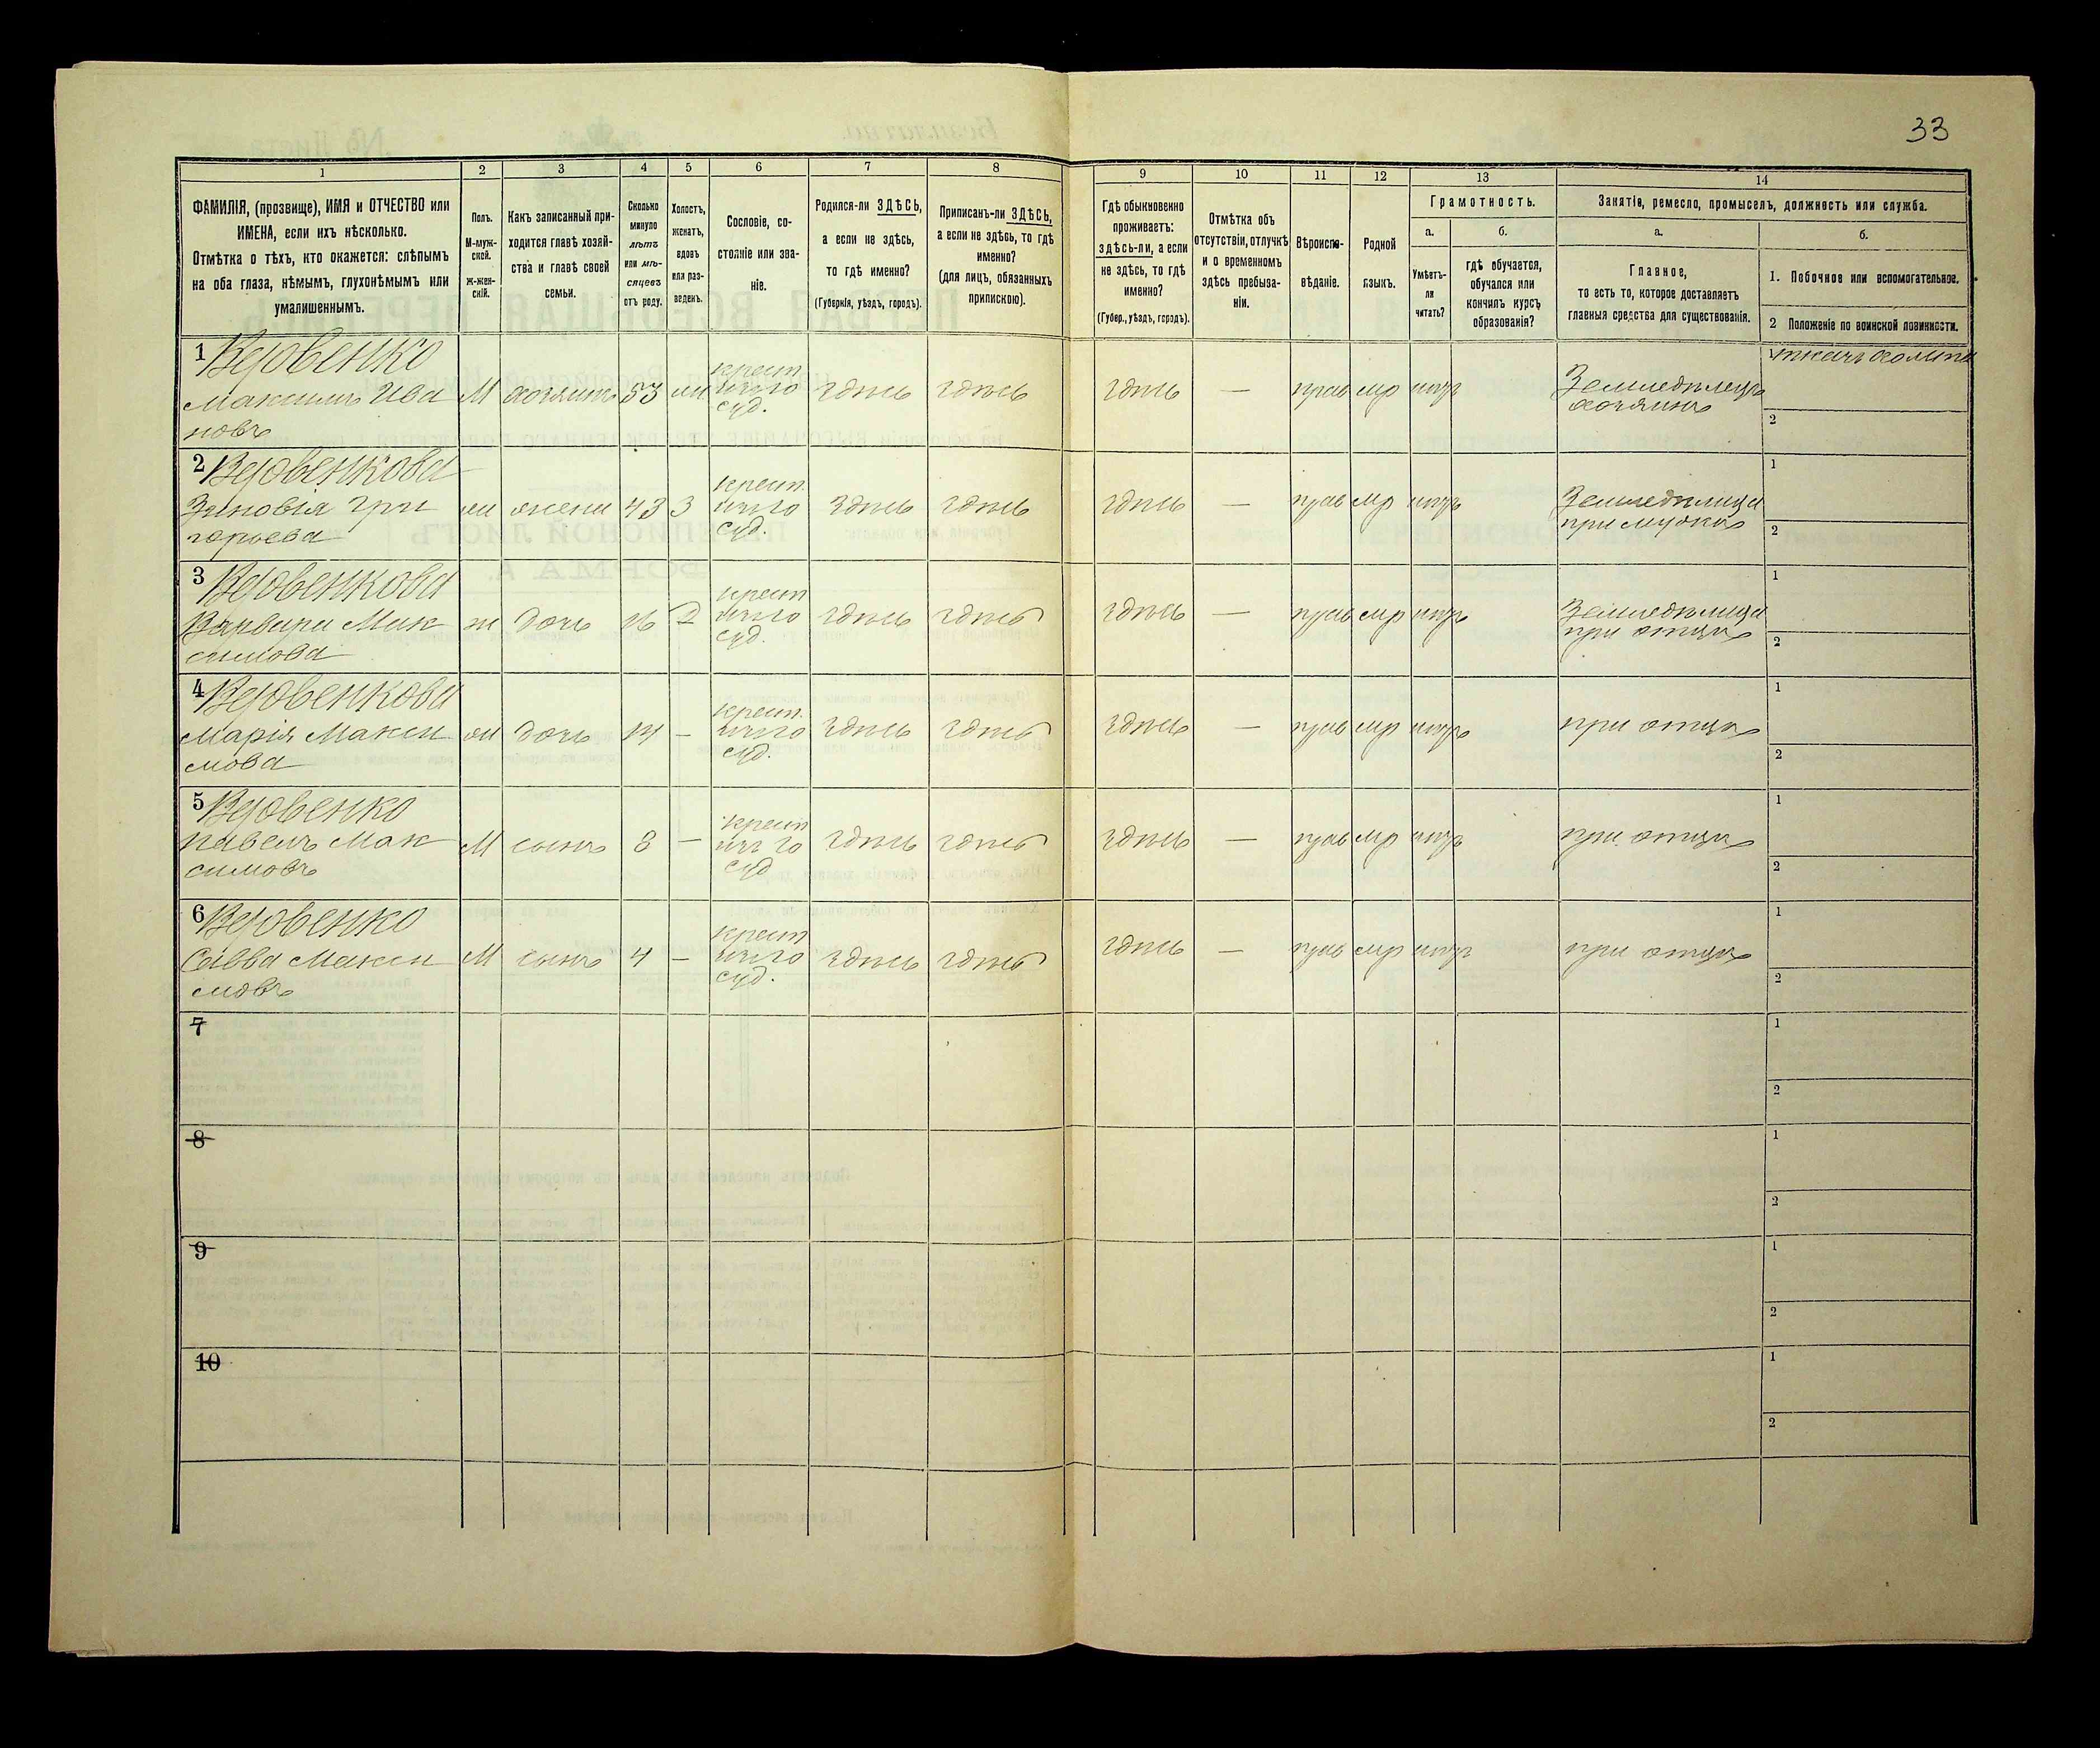 33
1 2 3 4 5 6 7 8 9 10 11 12 13 14
ФАМИЛІЯ, (прозвище), ИМЯ и ОТЧЕСТВО или
ИМЕНА, если ихъ нѣсколько.
Отмѣтка о тѣхъ, кто окажется: слѣпымъ
на оба глаза, нѣмымъ, глухонѣмымъ или
умалишеннымъ.
Полъ.
М-муж-
ской.
ж-жен-
скій.
Какъ записанный при-
ходится главѣ хозяй-
ства и главѣ своей
семьи.
Сколько
минуло
лѣтъ
или мѣ-
сяцевъ
отъ роду.
Холостъ,
женатъ,
вдовъ
или раз-
веденъ.
Сословіе, со-
стояніе или зва-
ніе.
Родился-ли ЗДѢСЬ,
а если не здѣсь,
то гдѣ именно?
(Губернія, уѣздъ, городъ).
Приписанъ-ли ЗДѢСЬ,
а если не здѣсь, то гдѣ
именно?
(для лицъ, обязанныхъ
припискою).
Гдѣ обыкновенно
проживаетъ:
здѣсь-ли, а если
не здѣсь, то гдѣ
именно?
(Губер., уѣздъ, городъ).
Отмѣтка объ
отсутствіи, отлучкѣ
и о временномъ
здѣсь пребыва-
ніи.
Вѣроиспо-
вѣданіе.
Родной
языкъ.
Грамотность.
а.
Умѣетъ-
ли
читать?
б.
гдѣ обучается,
обучался или
кончилъ курсъ
образованія?
Занятіе, ремесло, промыселъ, должность или служба.
а.
Главное,
то есть то, которое доставляетъ
главныя средства для существованія.
б.
1. Побочное или вспомогательное.
2 Положеніе по воинской повинности.
1 Вдовенко
Максимъ Ива
новъ
М хозяинъ 53 крест. суд. здѣсь здѣсь здѣсь — прав мр нѣтъ
Земледѣлецъ
хозяинъ
2
2 Вдовенкова
Зиновія Гри
горьева
ж жена 43 З крест. суд. здѣсь здѣсь здѣсь — прав мр нѣтъ
Земледѣлица
при мужѣ
1
2
3 Вдовенкова
Варвара Мак
симова
ж дочь 16 Д крест суд. здѣсь здѣсь здѣсь — прав мр нѣтъ
Земледѣлица
при отцѣ
1
2
4 Вдовенкова
Марія Макси
мова
ж дочь 14 — крест. суд. здѣсь здѣсь здѣсь — прав мр нѣтъ
при отцѣ
1
2
5 Вдовенко
Павелъ Мак
симовъ
М сынъ 8 — крест суд здѣсь здѣсь здѣсь — прав мр нѣтъ
при отцѣ
1
2
6 Вдовенко
Савва Макси
мовъ
М сынъ 4 — крест суд. здѣсь здѣсь здѣсь — прав мр нѣтъ
при отцѣ
1
2
7
1
2
8
1
2
9
1
2
10
1
2